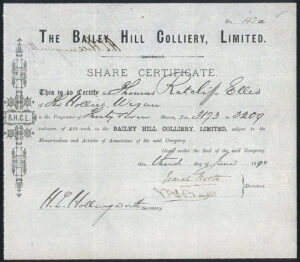 No.
THE BAILEY HILL COLLIERY, LIMITED.
SHARE CERTIFICATE.
This is to Certify that Thomas Ratcliffe Ellis
of The Hollies Wigan
is the Proprietor of Thirty Seven Shares, Nos. 3173 to 3209
inclusive, of £10 each, in the BAILEY HILL COLLIERY, LIMITED, subject to the
Memorandum and Articles of Association of the said Company.
Given under the Seal of the said Company,
this third day of June 1890
B.H.C.L.
Directors.
H. E. Hollingworth
Secretary.